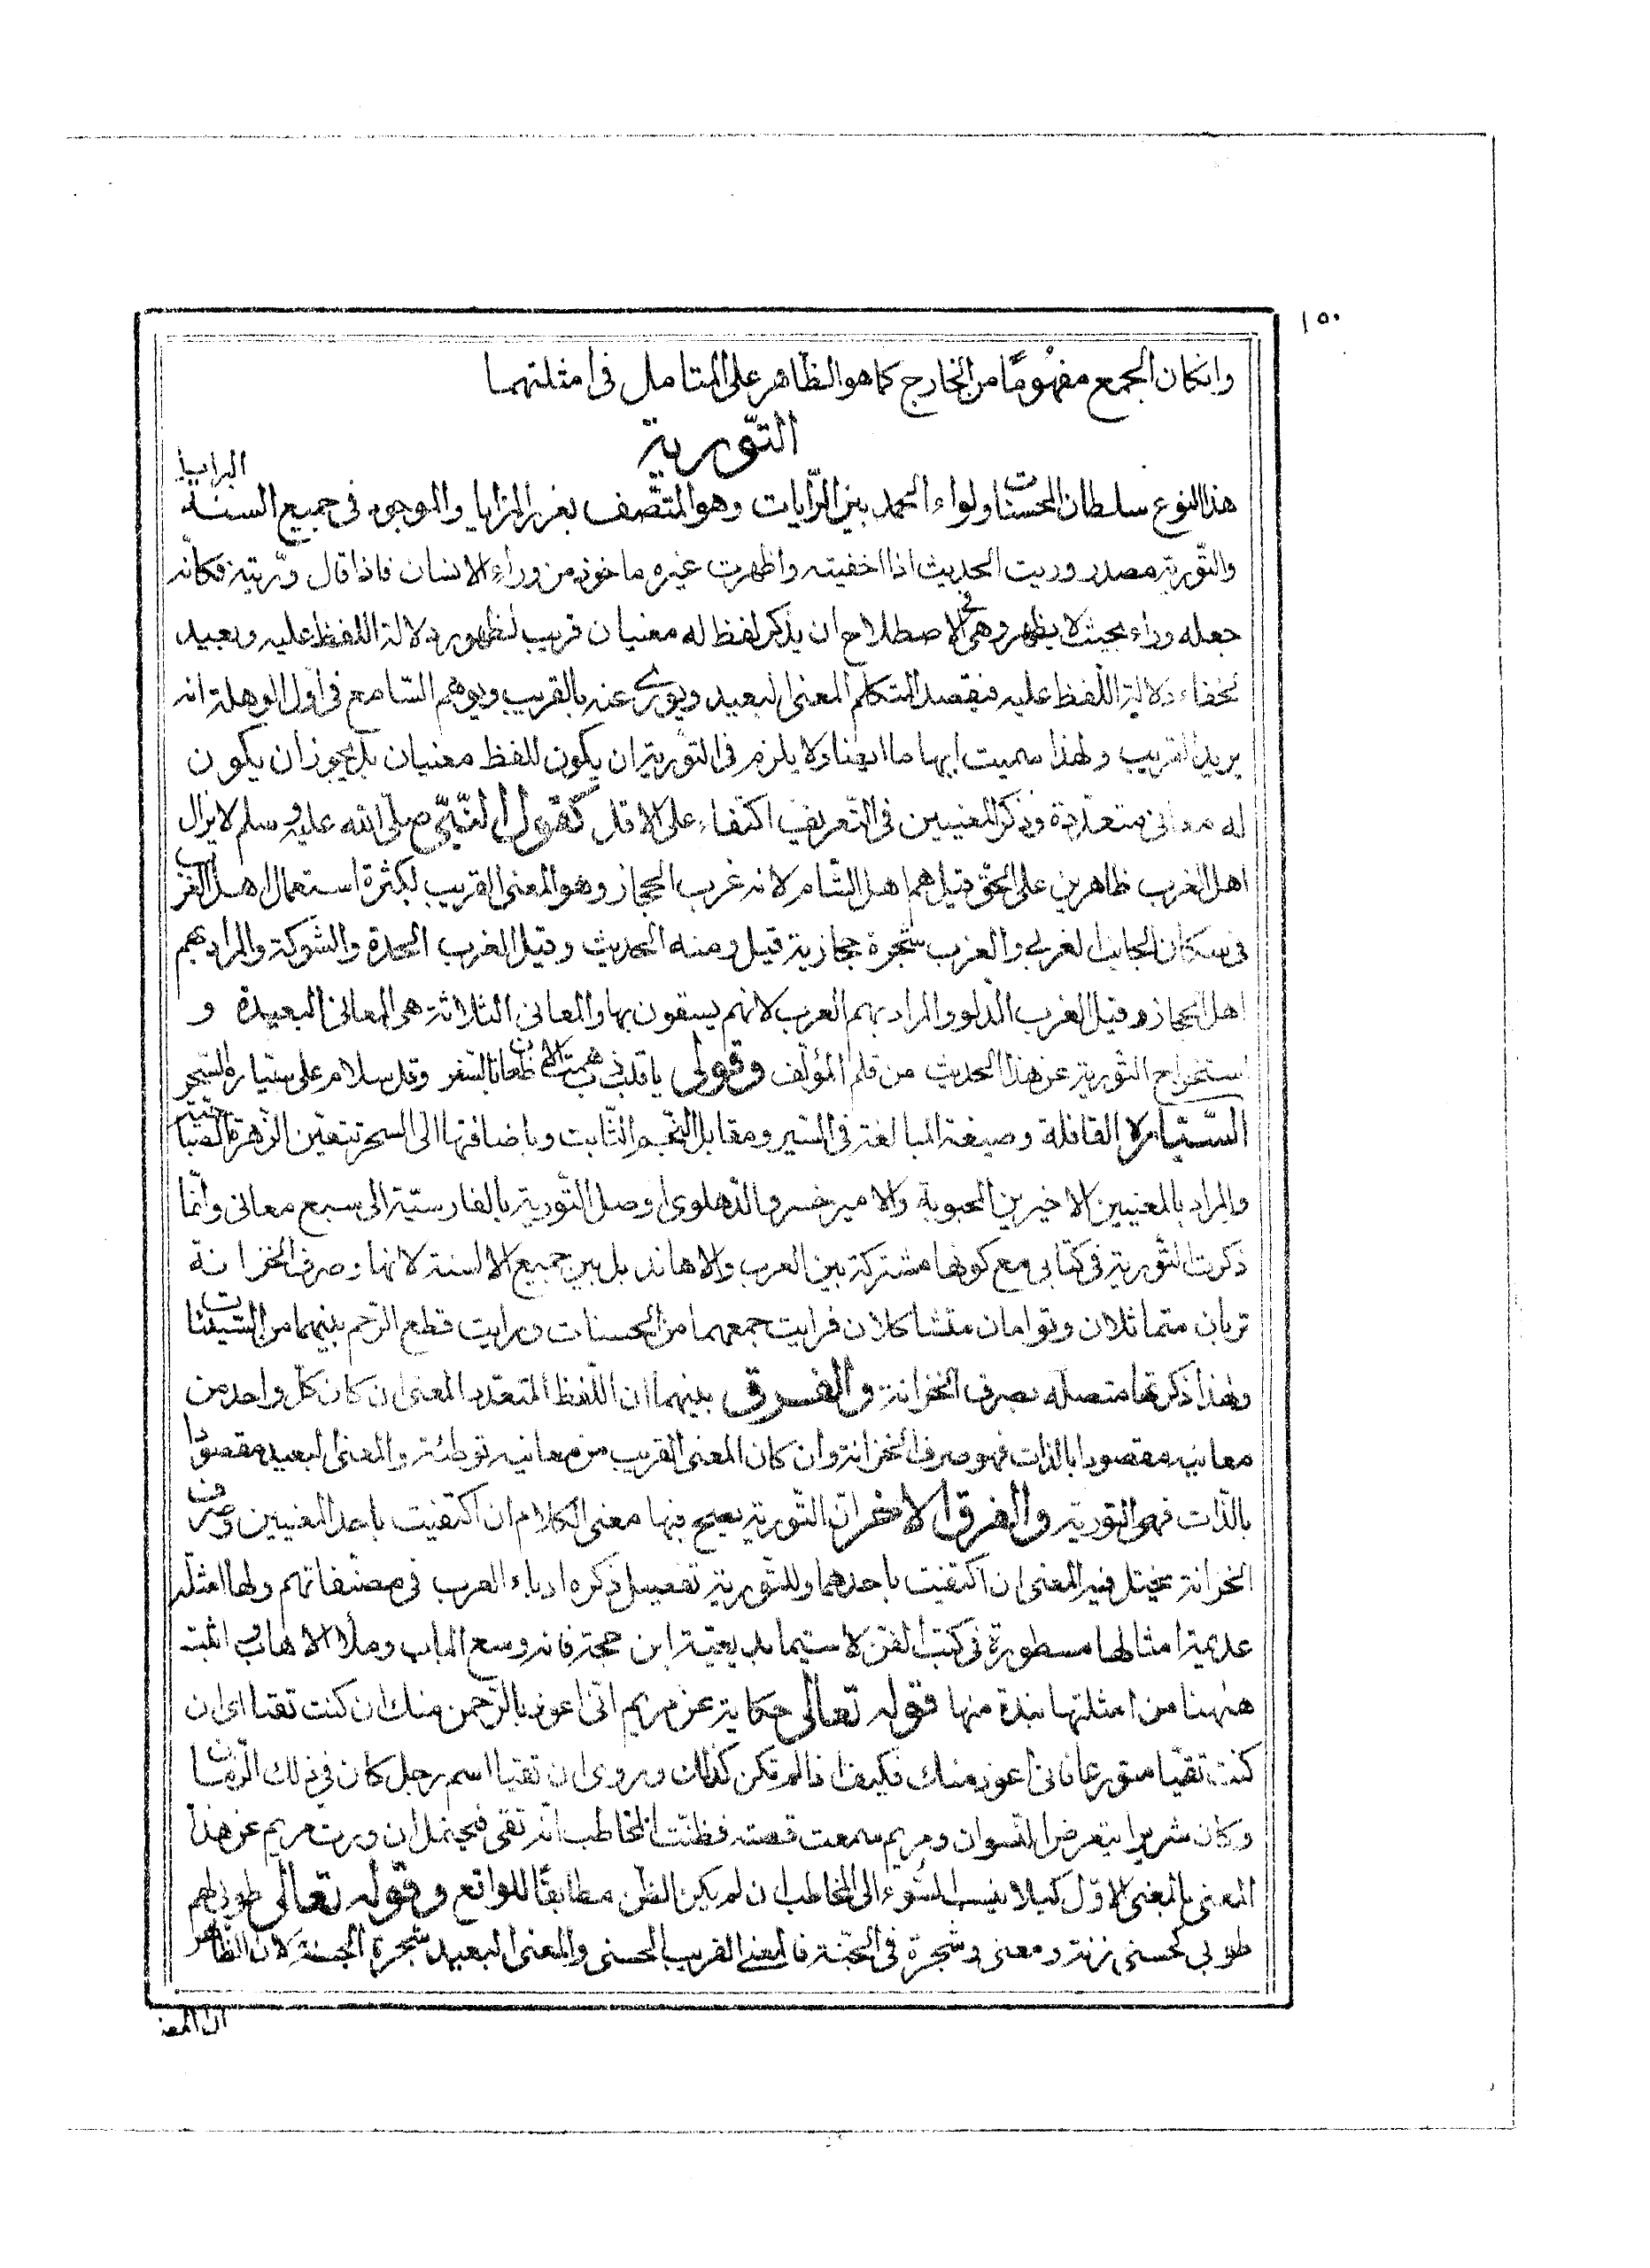 ١٥٠
وانكان الجمع مفهومًا من الخارج كما هو الظّاهر على المتامل فى امثلتهما
التّورية
هذا النوع سلطان المحسنات ولواء الحمد بين الرّايات وهو المتّصف بغرر المزايا والموجود فى جميع السنة البرايا
والتّورية مصدر وريت الحديث اذا اخفيته واظهرت غيره ماخوذ من وراء الانسان فاذا قال ورّيته فكانّه
جعله وراءه بحيث لا يظهر وهى فى الاصطلاح ان يذكر لفظ له معنيان قريب لظهور دلالة اللفظ عليه وبعيد
لخفاء دلالة اللّفظ عليه فيقصد المتكلم المعنى البعيد ويورّى عنه بالقريب ويوهم السّامع فى اوّل الوهلة انه
يريد القريب ولهذا سميت ايهاما ايضا ولا يلزم فى التّورية ان يكون للفظ معنيان بل يجوز ان يكون
له معانى متعدّدة وذكر المعنيين فى التّعريف اكتفاء على الاقل كقول النّبىّ صلّى الله عليه وسلم لا يزال
اهل الغرب ظاهرين على الحقّ قيل هم اهل الشّام لانه غرب الحجاز وهو المعنى القريب لكثرة استعمال اهل الغرب
فى سكان الجانب الغربى والغرب شجرة حجازية قيل ومنه الحديث وقيل الغرب الحدة والشّوكة والمراد هم
اهل الحجاز وقيل الغرب الدّلو والمراد بهم العرب لانهم يسقون بها والمعانى الثلاثة هى المعانى البعيدة و
استخراج التّورية عن هذا الحديث من قلم المؤلّف وقولى يا قلب همت الاظعان بالسّفر وقل سلام على سيّارة السّحر
السّيّارة القافلة وصيغة المبالغة فى السّير ومقابل النّجم الثّابت وباضافتها الى السحر تتعيّن الزّهرة الصّباحيّة
والمراد بالمعنيين الاخيرين المحبوبة والامير خسرو الدّهلوى اوصل التّورية بالفارسيّة الى سبع معانى وانّما
ذكرت التّورية فى كتابى مع كونها مشتركة بين العرب والاهاند بل بين جميع الالسنة لانها وصرف الخزانة
تربان متماثلان وتوامان متشاكلان فرايت جمعهما من الحسنات ورايت قطع الرّحم بينهما من السّيئات
ولهذا ذكرتها متصلة بصرف الخزانة والفرق بينهما ان اللّفظ المتعدد المعنى ان كان كلّ واحد من
معانيه مقصودا بالذات فهو صرف الخزانة وان كان المعنى القريب من معانيه توطئة والمعنى البعيد مقصودا
بالذّات فهو التورية والفرق الاخر انّ التّورية يصح فيها معنى الكلام ان اكتفيت باحد المعنيين وصرف
الخزانة يختل فيه المعنى ان اكتفيت باحدهما وللتّورية تفصيل ذكره ادباء العرب فى مصنّفاتهم ولها امثلة
عديمة امثالها مسطورة فى كتب الفنّ لا سيّما بديعيّة ابن حجة فانه وسع الباب وملأ الاهاب واثبت
ههنا من امثلتها نبذة منها قوله تعالى حكاية عن مريم انّى اعوذ بالرّحمن منك ان كنت تقيا اى ان
كنت تقيّا متورعا فانى اعوذ منك فكيف اذا لم تكن كذلك وروى ان تقيا اسم رجل كان فى ذلك الزّمان
وكان شريرا يتعرض النّسوان ومريم سمعت قصته فظنّت المخاطب انّه تقى فيحتمل ان ورت مريم عن هذا
المعنى بالمعنى الاوّل كيلا ينسب السّوء الى المخاطب ان لم يكن الظن مطابقًا للواقع وقوله تعالى طوبى لهم
طوبى لحسنى زنة ومعنى وشجرة فى الجنّة فالمعنى القريب الحسنى والمعنى البعيد شجرة الجنة لان الظّاهر
ان المعنى